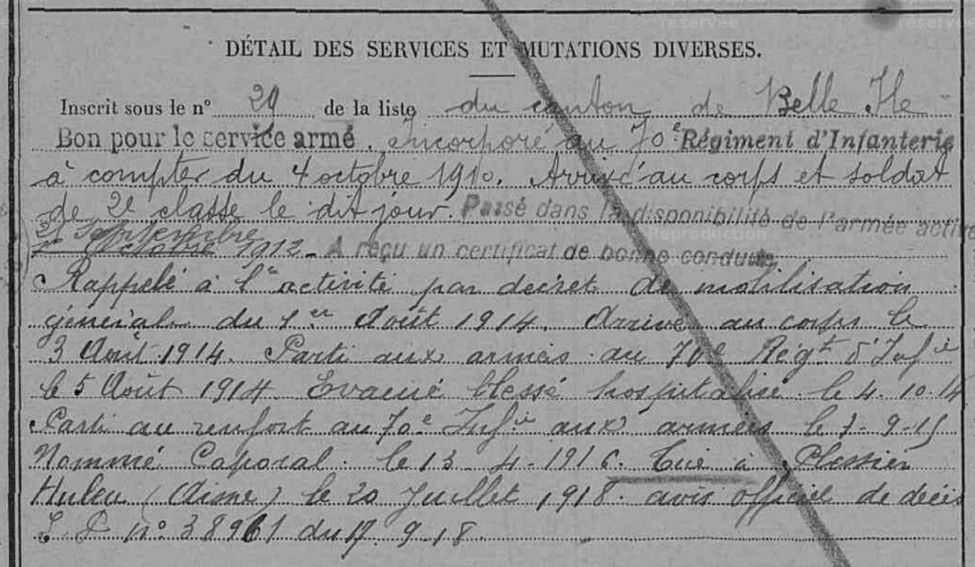 DÉTAIL DES SERVICES ET MUTATIONS DIVERSES.
Inscrit sous le n° 29 de la liste du canton de Belle Ile
Bon pour le service armé. Incorporé au 70e Régiment d'Infanterie
à compter du 4 octobre 1910. Arrivé au corps et soldat
de 2e classe le dit jour. Passé dans la disponibilité de l'armée active
Septembre
1er Octobre 1912 - A reçu un certificat de bonne conduite
Rappelé à l'activité par décret de mobilisation
générale du 1er Août 1914. Arrivé au corps le
3 Août 1914. Parti aux armées au 70e Régt d'Infie
le 5 Août 1914 Evacué blessé hospitalisé le 4.10.14
Parti au renfort au 70e Infie aux armées le 7-9-15
Nommé Caporal. le 13-4-1916. Tué à Plessier
Huleu (Aisne) le 20 Juillet 1918. avis officiel de décès
n° 38961 du 17.9.18.